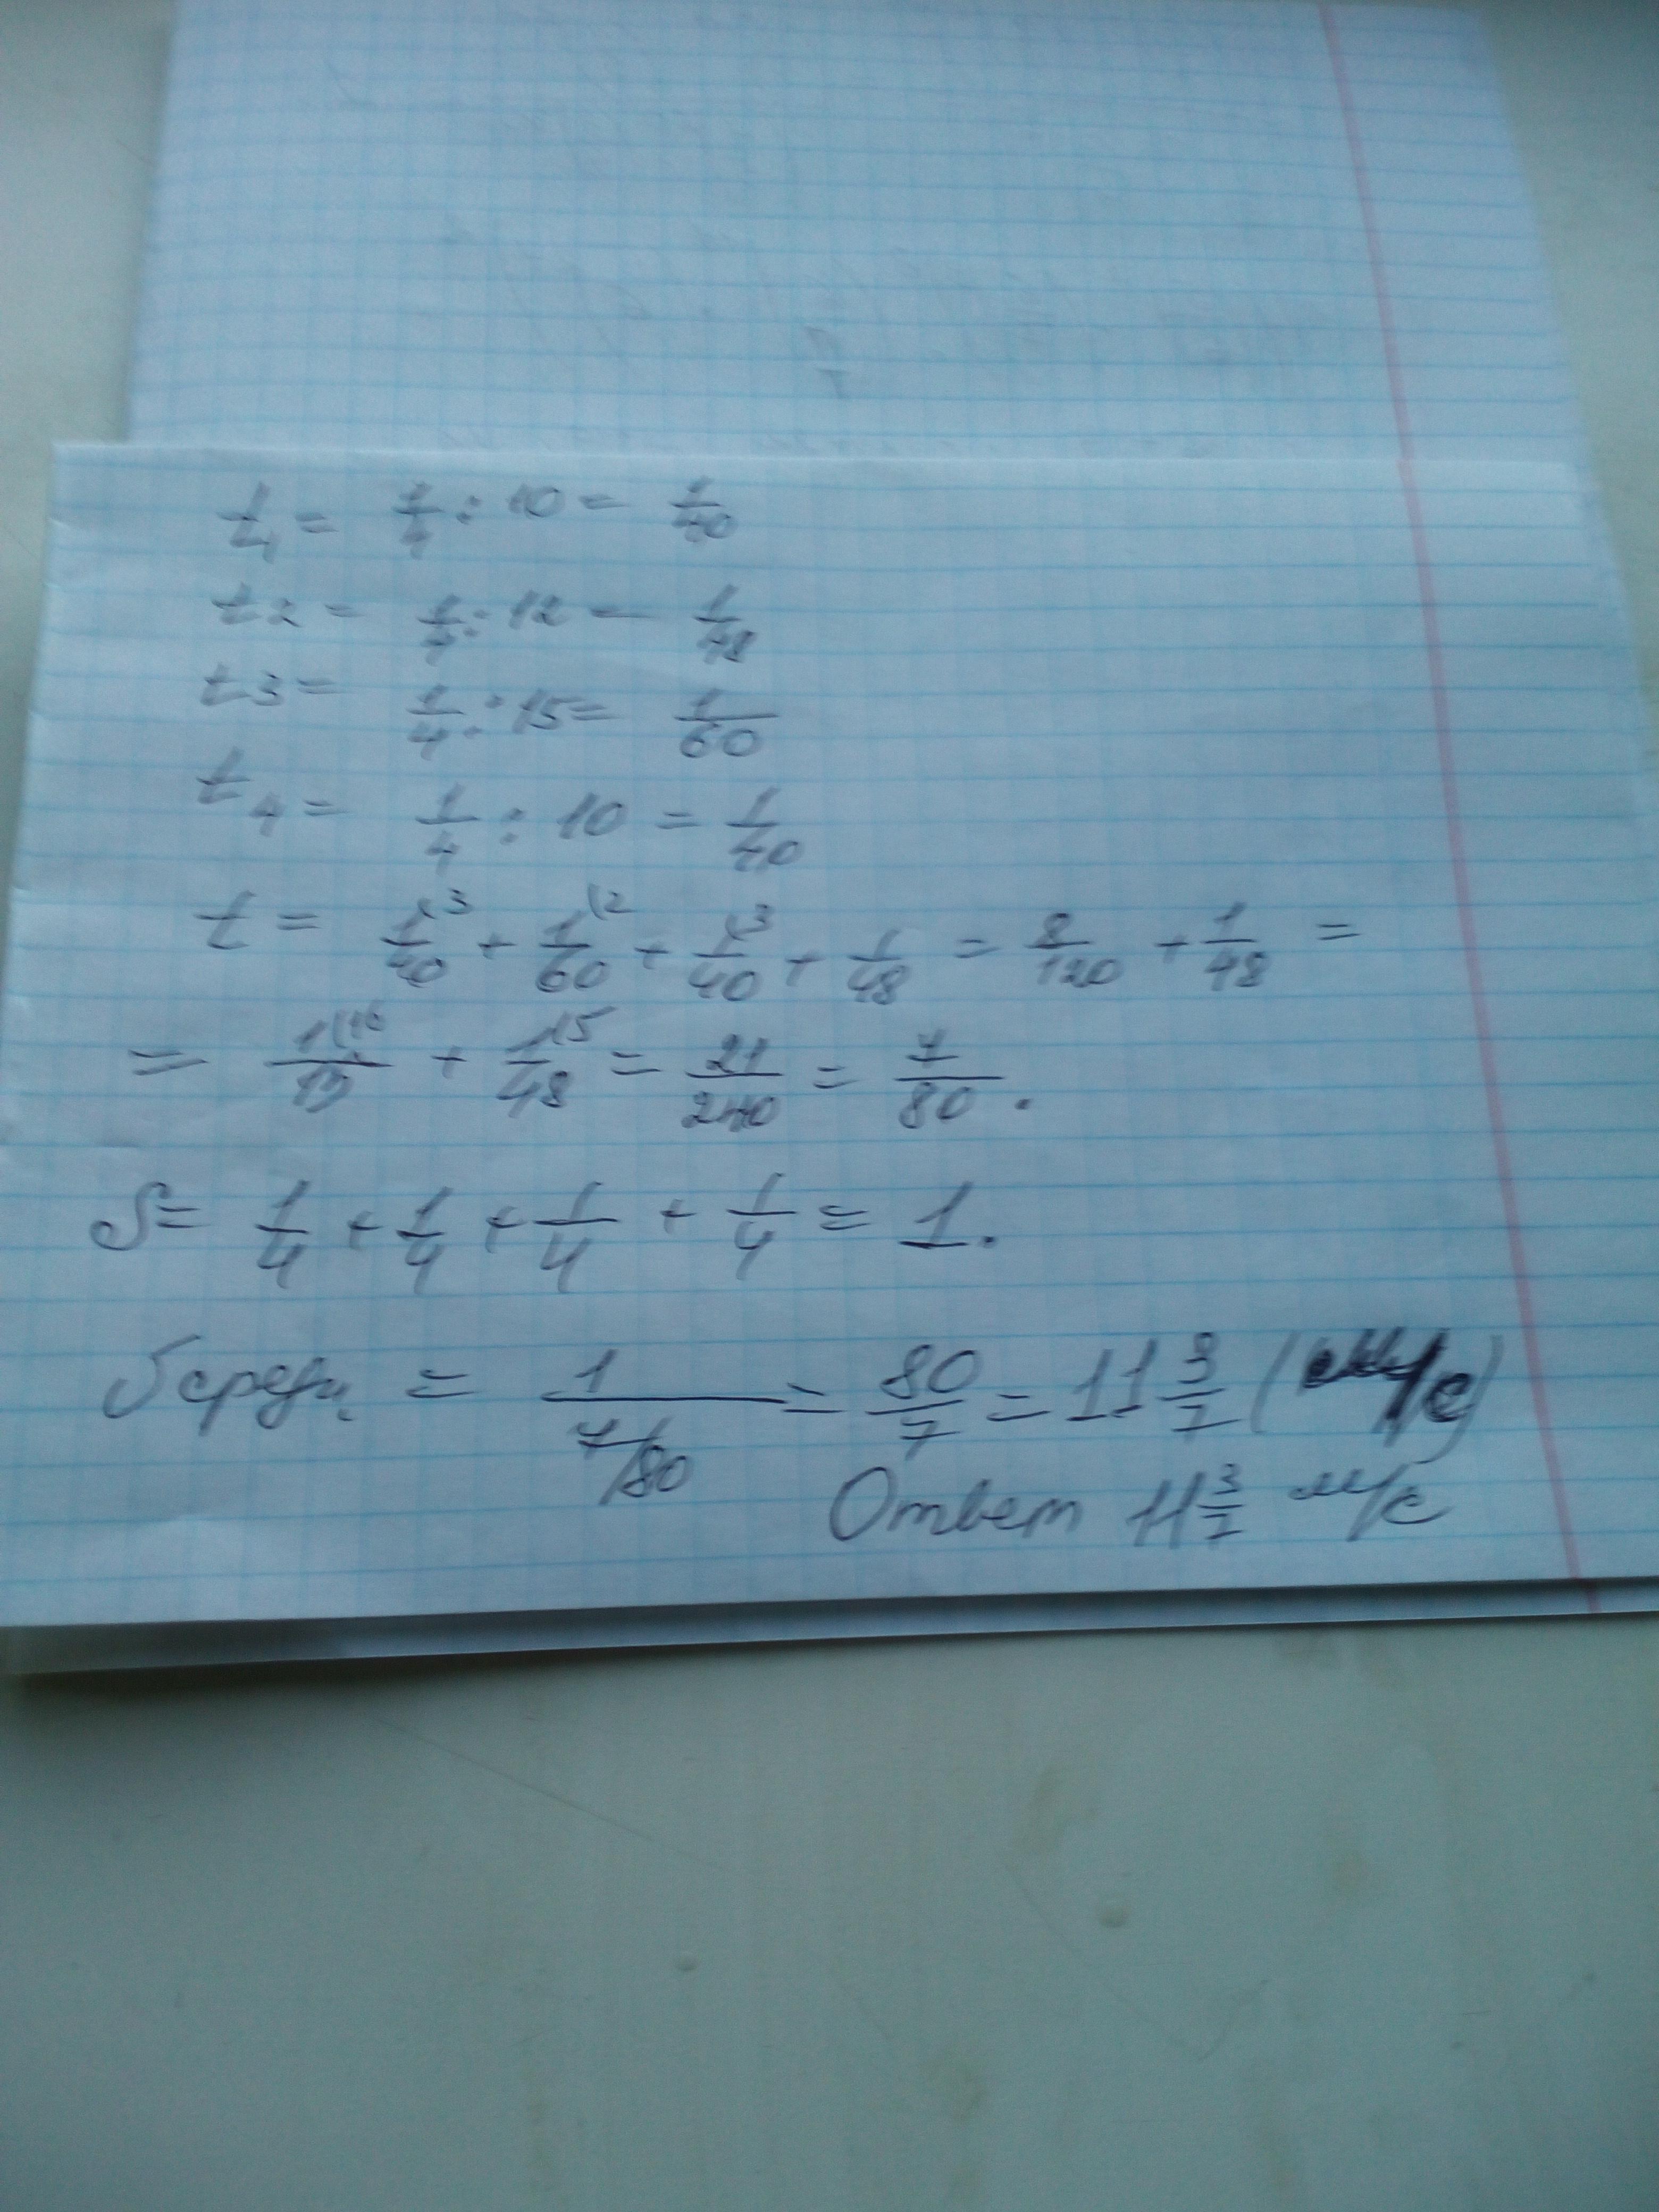 t₁ = 1/4 : 10 = 1/40
t2 = 1/4 : 12 = 1/48
t3 = 1/4 : 15 = 1/60
t4 = 1/4 : 10 = 1/40
t = 1/40\3 + 1/60\2 + 1/40\3 + 1/48 = 8/120 + 1/48 =
= 1/15\16 + 1/48\5 = 21/240 = 7/80 .
S = 1/4 + 1/4 + 1/4 + 1/4 = 1.
средн = 1/(7/80) = 80/7 = 11 3/7 (м/с)
Ответ 11 3/7 м/с